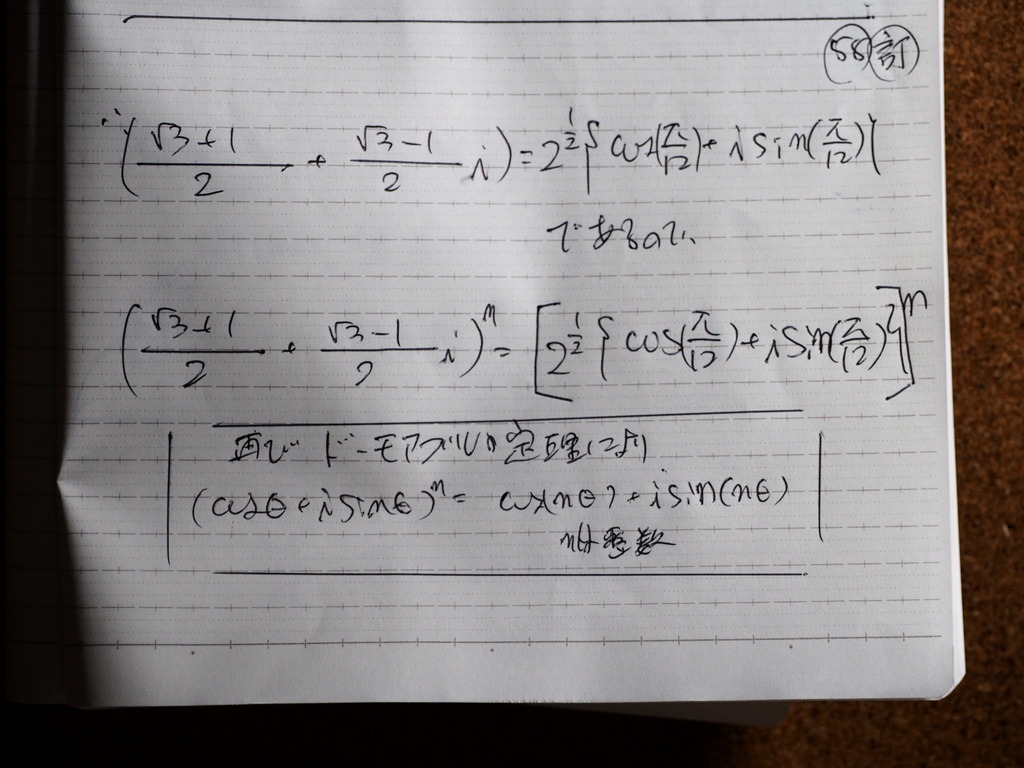 58 訂
(√3+1/2 + √3-1/2 i) = 2^{1/2}{cos(π/12) + i sin(π/12)}
であるので、
(√3+1/2 + √3-1/2 i)^n = [2^{1/2}{cos(π/12) + i sin(π/12)}]^n
再び ド・モアブルの定理により
(cosθ + i sinθ)^n = cos(nθ) + i sin(nθ)
nは整数